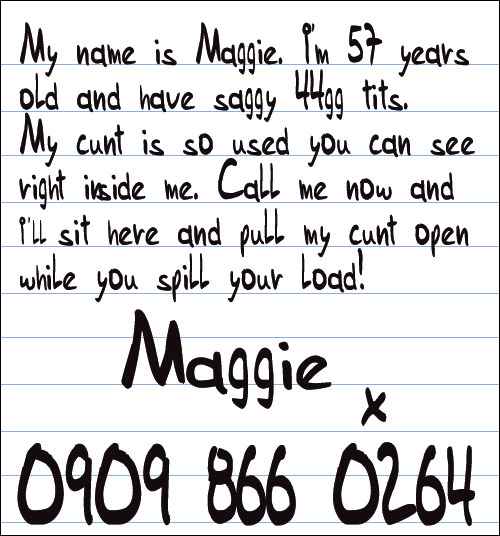 My name is Maggie. I'm 57 years
old and have saggy 44gg tits.
My cunt is so used you can see
right inside me. Call me now and
I'll sit here and pull my cunt open
while you spill your load!
Maggie
x
0909 866 0264